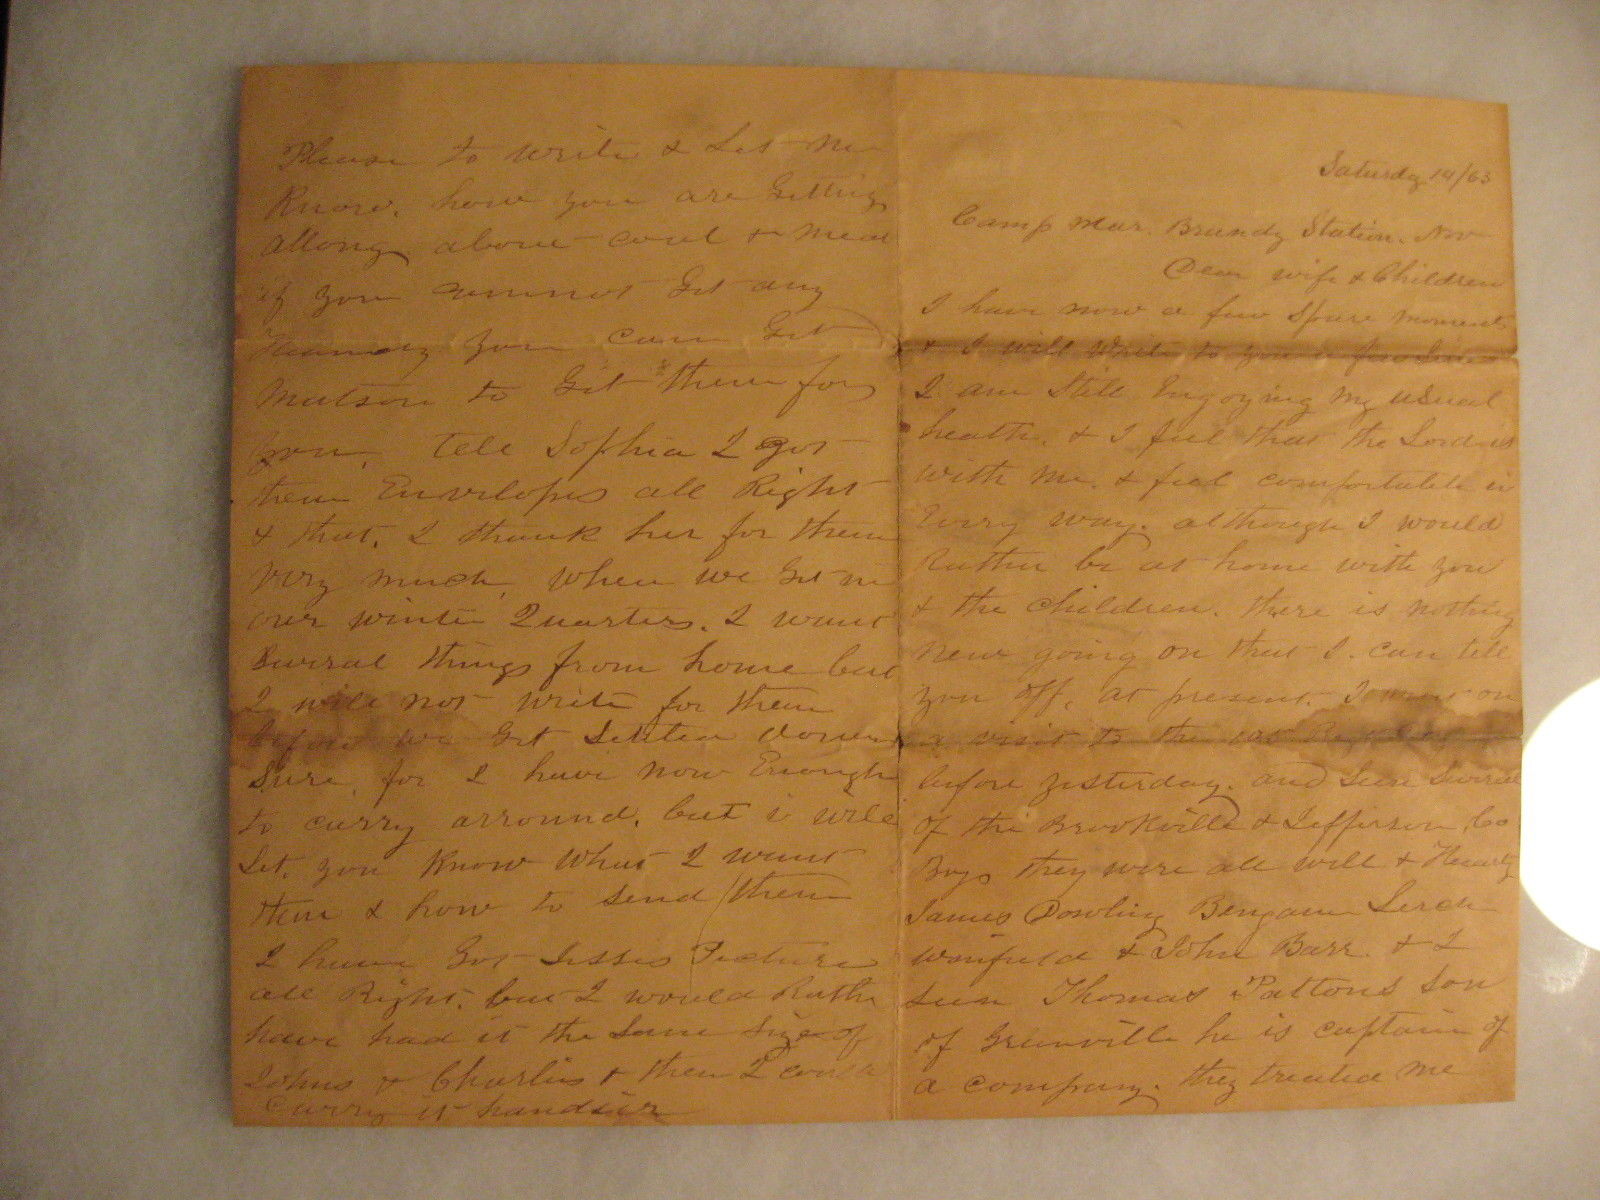 Saturdy 14/63
Camp near. Brandy Station. Nov
Dear wife & Children
I have now a few Spare moments
& I will write to you a few Lines
I am Still Enjoying my usual
health. & I feel that the Lord is
with me. & feel comfortable in
Evry way. although I would
Rather be at home with you
& the children. there is nothing
new going on that I. can tell
you off, at present. I went on
a visit to the 105 Regiment
before yesterday. and Seen Sevral
of the Brookville & Jefferson, Co
Boys they were all will & Hearty
James Dowling Bengamin Lerch
Winfield & John Barr. & I
Seen Thomas Pattons Son
of Greenville he is captain of
a company. they treated me
Please to write & Let me
Know. how you are Getting
allong. about coal & meal
if you cannot Get any
you can Get
Matson to Git them for
you. tell Sophia I got
them Envelopes all Right
& that. I thank her for them
very much, when we Get in
our winter Quarters. I want
Sevral things from home but
I will not write for them
before we Get Settled down
Sure, for I have now Enough
to carry arround. but i will
Let. you Know what I want
then & how to Send them
I have Got Picture
all Right. but I would Rather
have had it the Same Size of
Johns & Charlies & then I could
Carry it handier